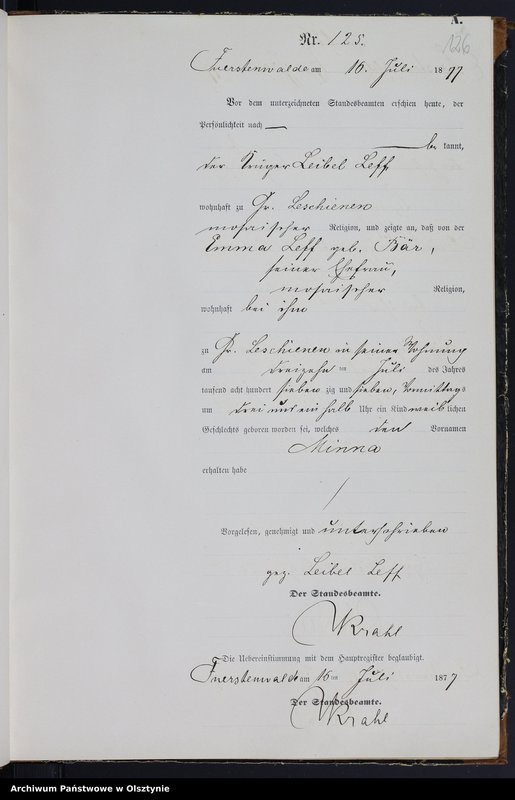 A.
126
Nr. 125.
Fuerstenwalde am 16. Juli 1877
Vor dem unterzeichneten Standesbeamten erschien heute, der
Persönlichkeit nach —
— be kannt,
der Krüger Leibel Leff
wohnhaft zu Gr. Leschienen
mosaischer Religion, und zeigte an, daß von der
Emma Leff geb. Bär,
seiner Ehefrau,
mosaischer Religion,
wohnhaft bei ihm
zu Gr. Leschienen in seiner Wohnung
am dreizehn ten Juli des Jahres
tausend acht hundert sieben zig und sieben, Vormittags
um drei und ein halb Uhr ein Kind weib lichen
Geschlechts geboren worden sei, welches den Vornamen
Minna
erhalten habe
/
Vorgelesen, genehmigt und unterschrieben
gez. Leibel Leff
Der Standesbeamte.
Krahl
Die Uebereinstimmung mit dem Hauptregister beglaubigt.
Fuerstenwalde am 16 ten Juli 1877
Der Standesbeamte.
Krahl
Archiwum Państwowe w Olsztynie